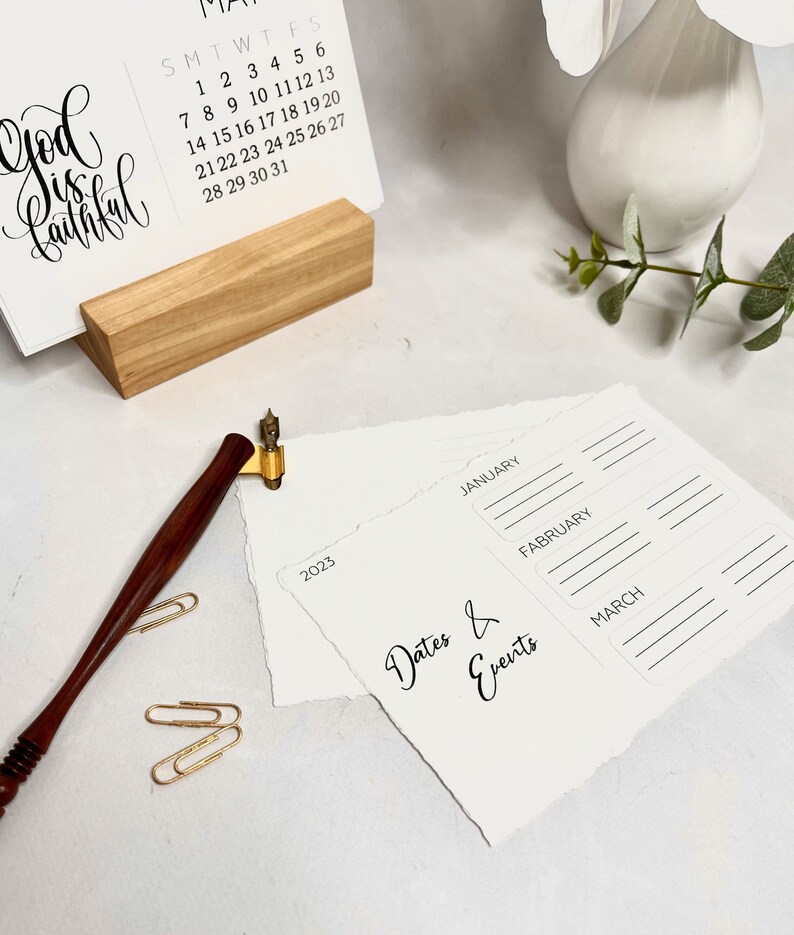 MAY
S M T W T F S
1 2 3 4 5 6
7 8 9 10 11 12 13
14 15 16 17 18 19 20
21 22 23 24 25 26 27
28 29 30 31
God
is
faithful
2023
Dates &
Events
JANUARY
FABRUARY
MARCH